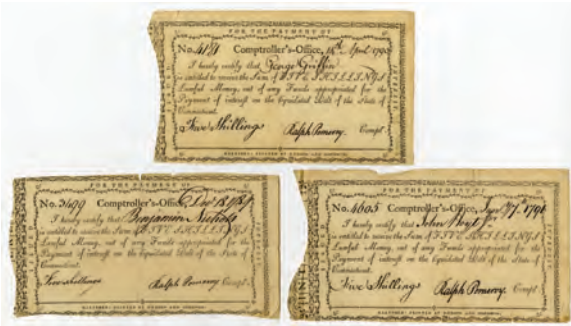 FOR THE PAYMENT OF
INTEREST
No. 4181 Comptroller's-Office, 18th April 1790
I hereby certify that George Griffin
is entitled to receive the Sum of FIVE SHILLINGS
Lawful Money, out of any Funds appropriated for the
Payment of interest on the liquidated Debt of the State of
Connecticut.
Five Shillings Ralph Pomeroy. Compt.
HARTFORD: PRINTED BY HUDSON AND GOODWIN.
FOR THE PAYMENT OF
INTEREST
No. 3499 Comptroller's-Office, Dec 18 1789
I hereby certify that Benjamin Nichols
is entitled to receive the Sum of FIVE SHILLINGS
Lawful Money, out of any Funds appropriated for the
Payment of interest on the liquidated Debt of the State of
Connecticut.
Five shillings Ralph Pomeroy Compt.
HARTFORD: PRINTED BY HUDSON AND GOODWIN.
FOR THE PAYMENT OF
INTEREST
No. 4605 Comptroller's-Office, 7th 1791
I hereby certify that John Hoyt Jr
is entitled to receive the Sum of FIVE SHILLINGS
Lawful Money, out of any Funds appropriated for the
Payment of interest on the liquidated Debt of the State of
Connecticut.
Five Shillings Ralph Pomeroy. Compt.
HARTFORD: PRINTED BY HUDSON AND GOODWIN.